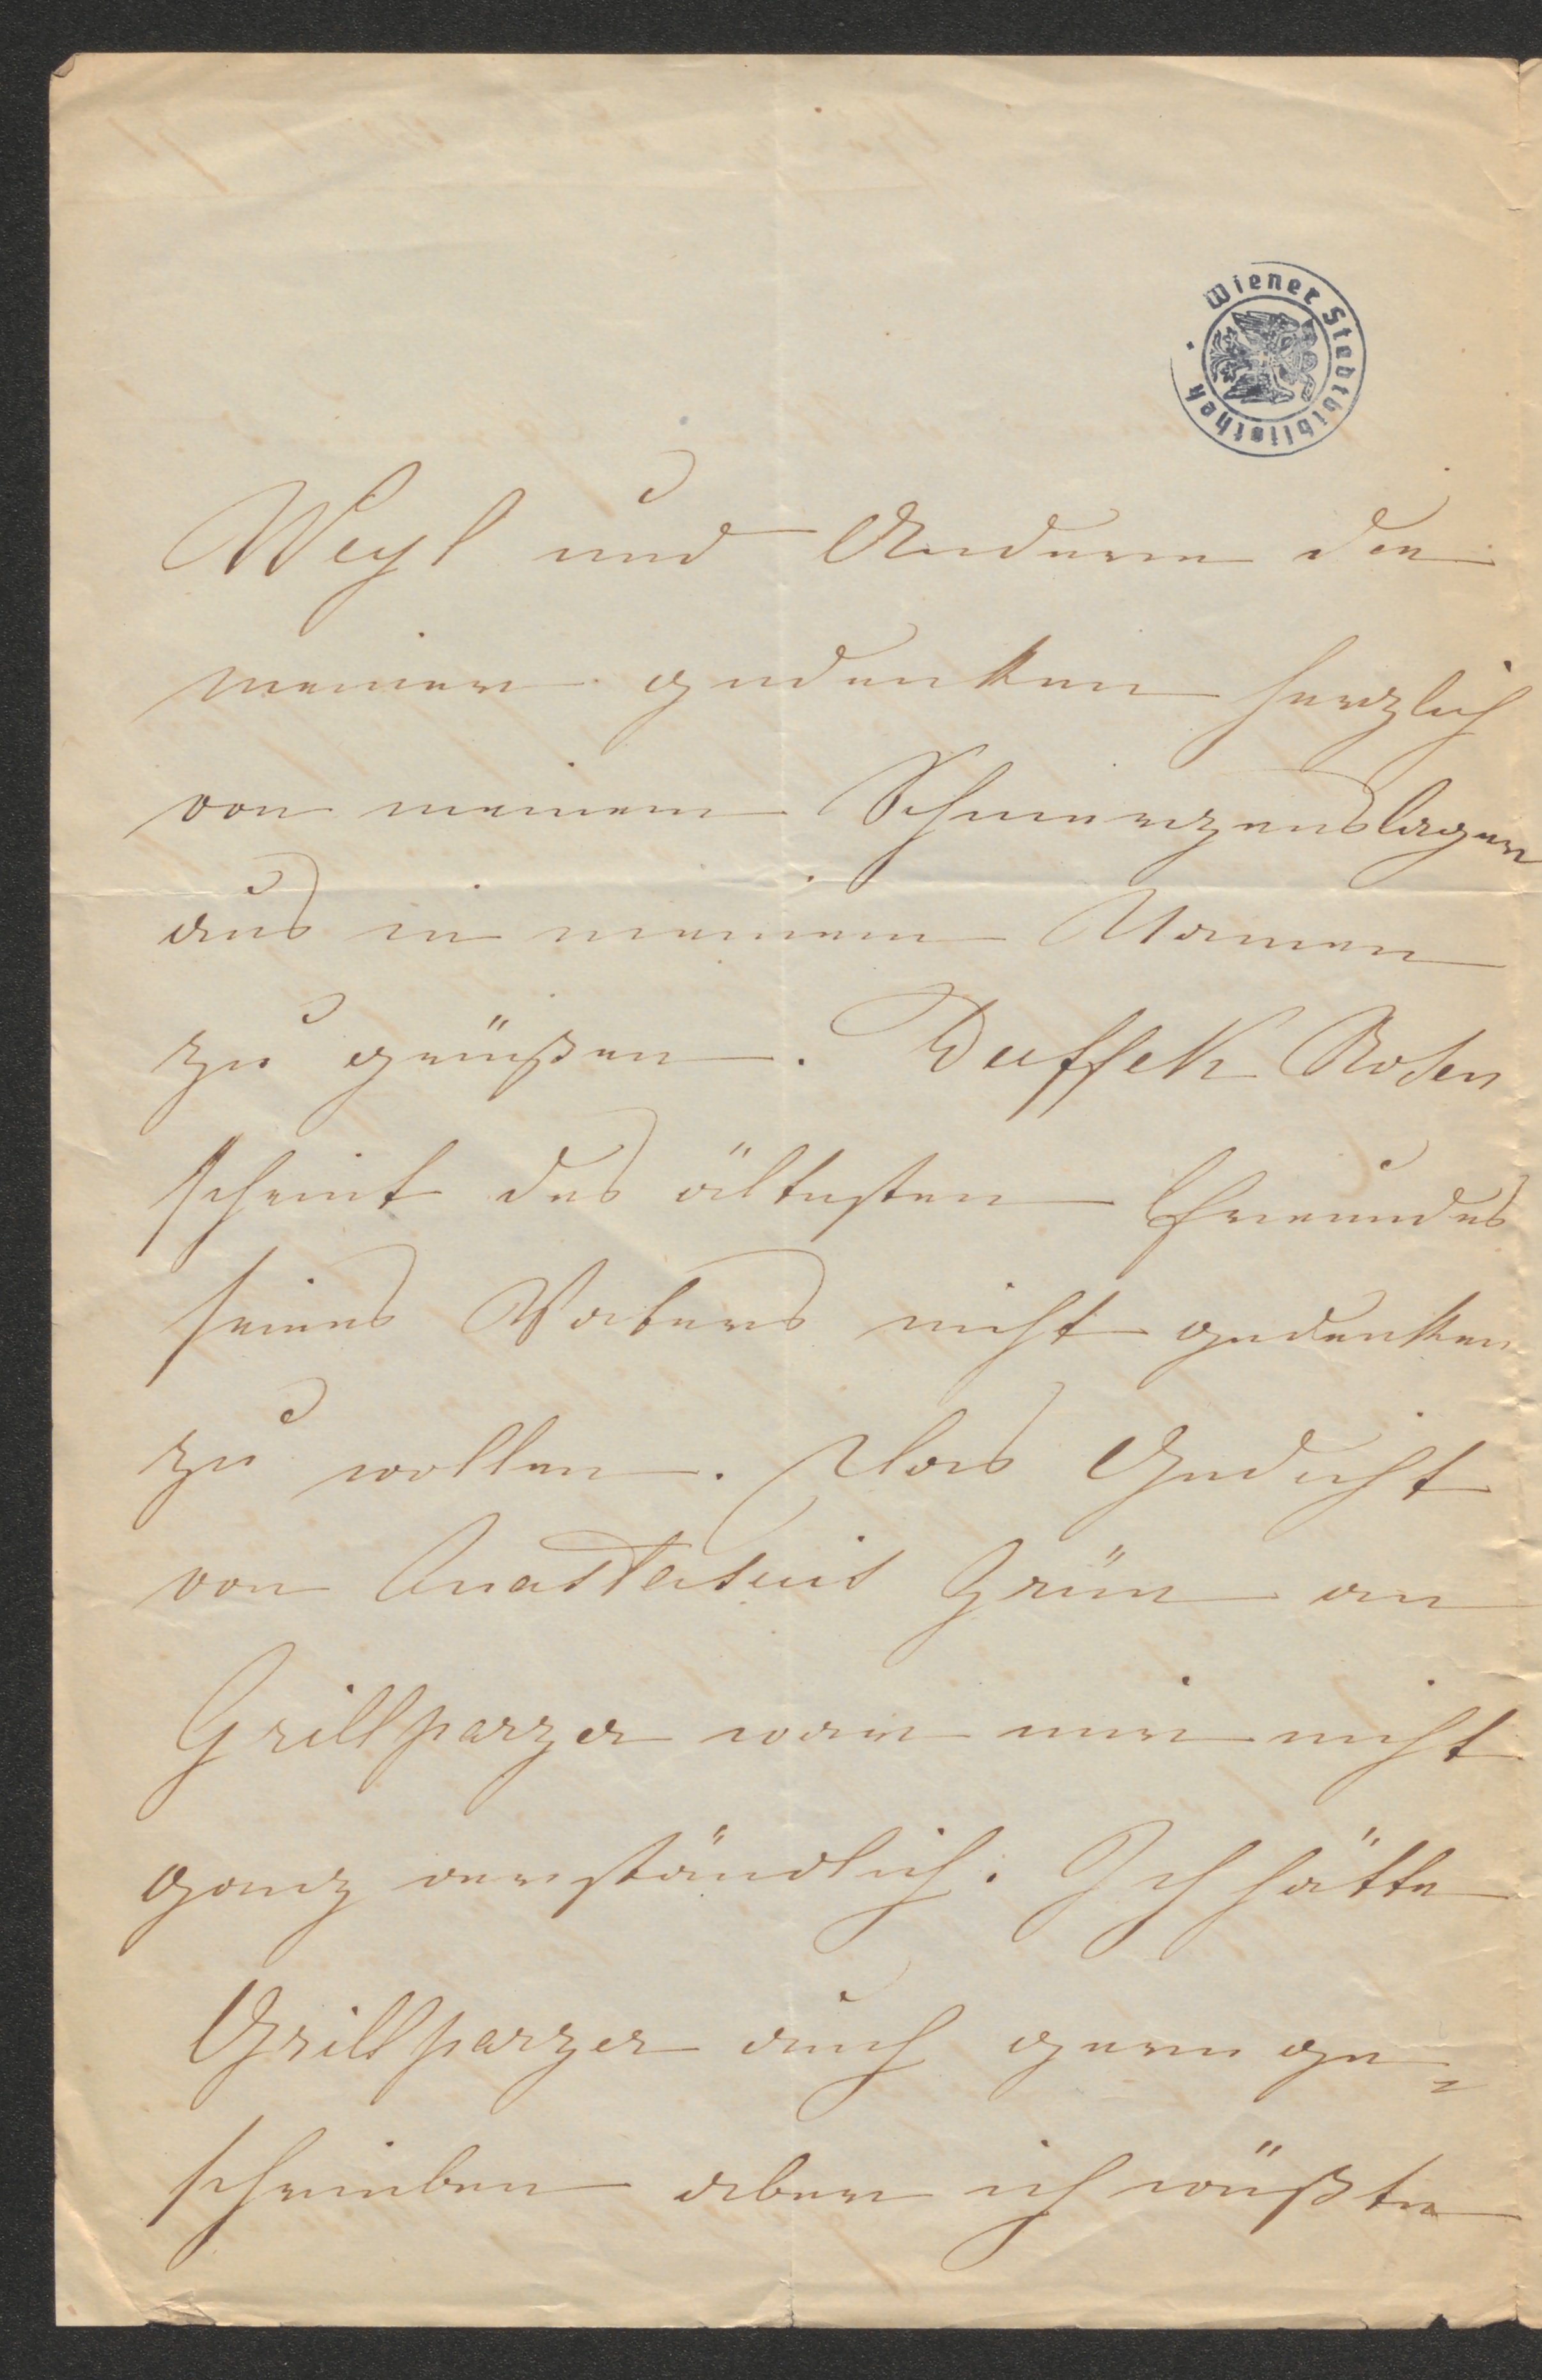 Wiener Stadtbibliothek
Weyl und Anderen die
meiner gedenken herzlich
von meinem Schmerzenslager
aus in meinem Namen
zu grüßen. Duffek Rosen
scheint des ältesten Freundes
seines Vaters nicht gedenken
zu wollen. Das Gedicht
von Anastasius Grün an
Grillparzer war mir nicht
ganz verständlich. Ich hätte
Grillparzer auch gern ge=
schrieben aber ich wüßte